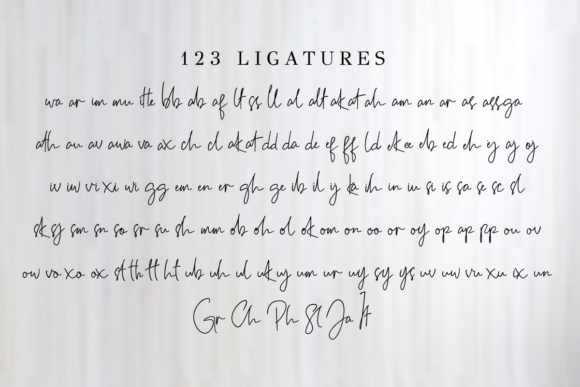 123 LIGATURES
wa ar im mu tte bb ab af lt ss ll al alt ak at ah am an ar as ass ga
ath au av awa va ax ch cl ak at dd da de ef ff ld ck ee eb ed eh ij aj oj
w iw vi xi wi gg em en er gh ge ib il y ka ih in iu si is sa se sc sl
sk sj sm sn so sr su sh mm ob oh ol ok om on oo or oy op ap pp ou ov
ow vo xo ox st th tt ht ub uh ul uk uj um ur uy sy ys uv uw vu xu ix un
Gr Ch Ph Sl Ja It